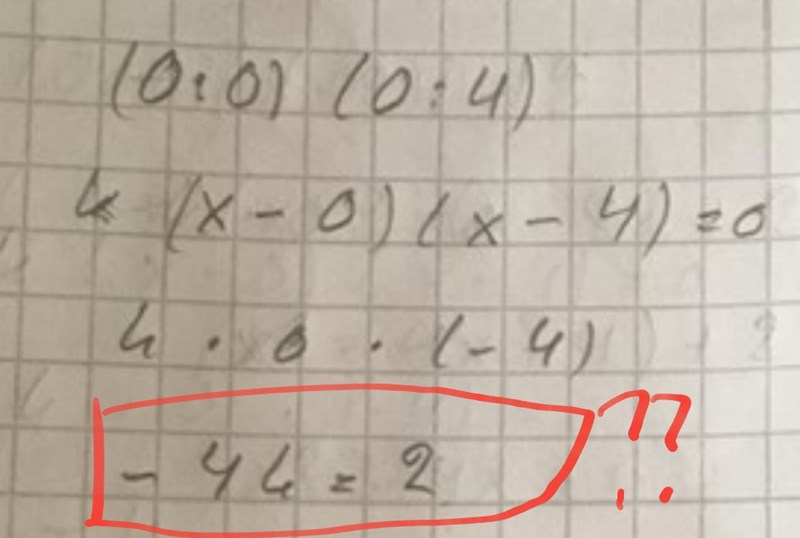 (0:0) (0:4)
k (x - 0) (x - 4) = 0
k · 0 · (-4)
- 4k = 2 ??